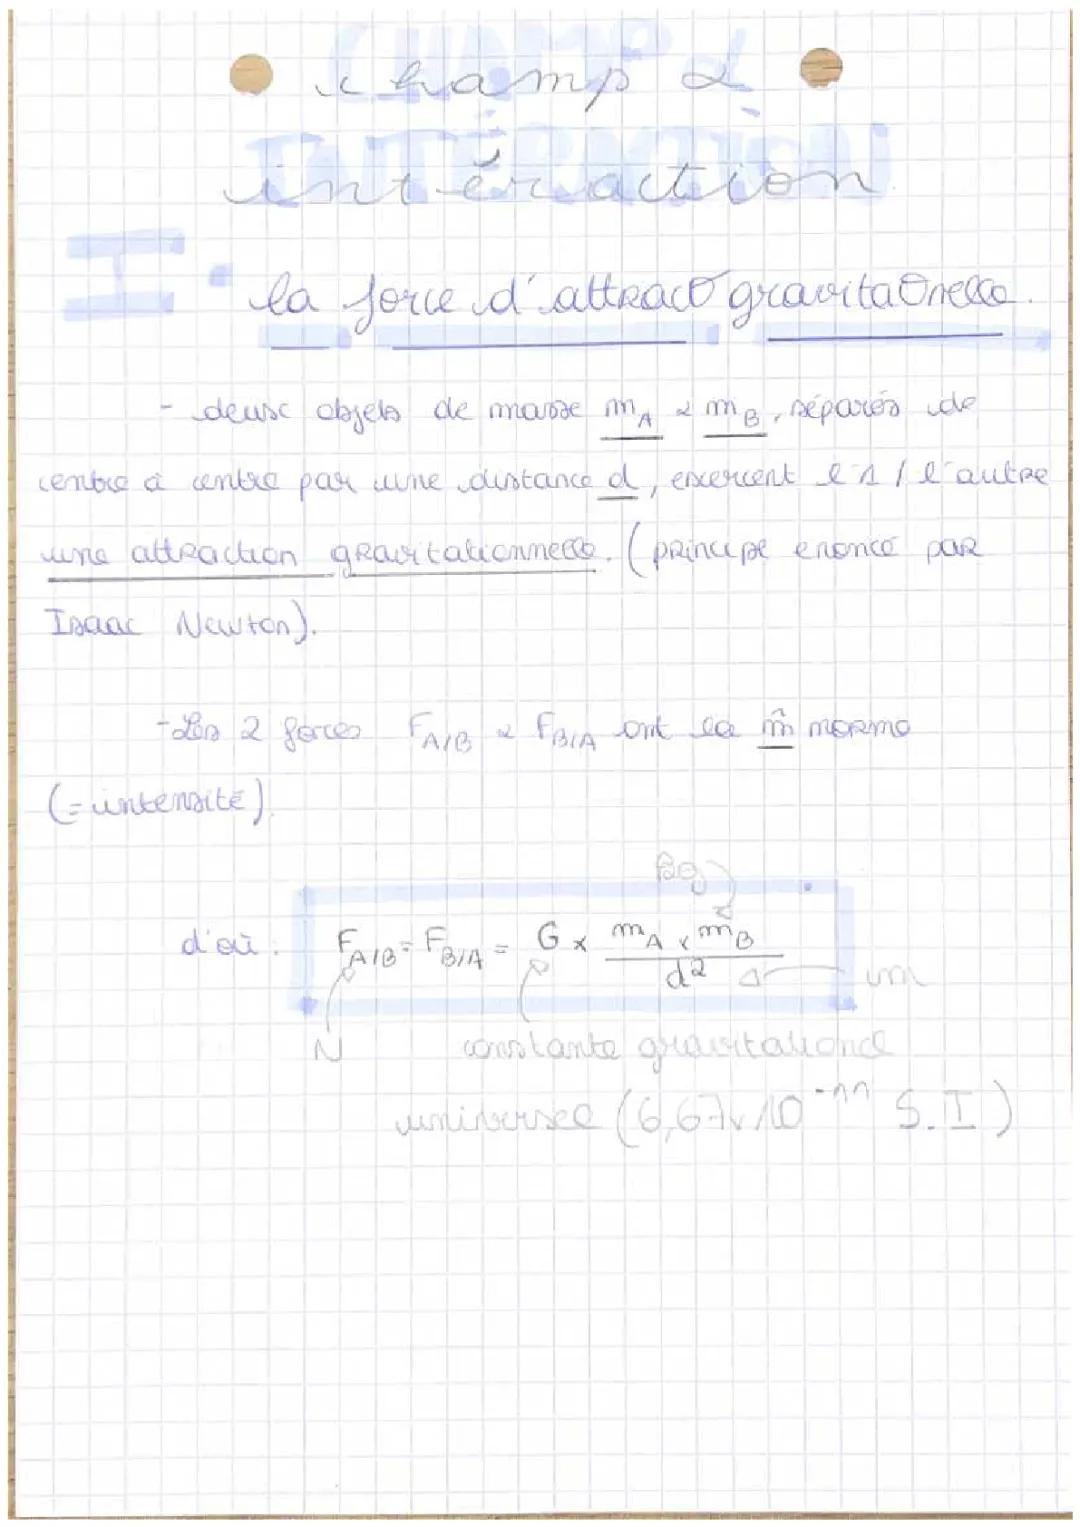 champ &
intéraction
I. la force d'attract° gravita°nelle.
- deux objets de masse mA & mB, séparés de
centre à centre par une distance d, exercent l'1 / l'autre
une attraction gravitationnelle. (principe enoncé par
Isaac Newton).
- Les 2 forces FA/B & FB/A ont la m̂ norme
(= intensité).
kg
d'où : FA/B = FB/A = G x mA x mB / d²
m
N constante gravitationel
universel (6,67x10⁻¹¹ S.I)